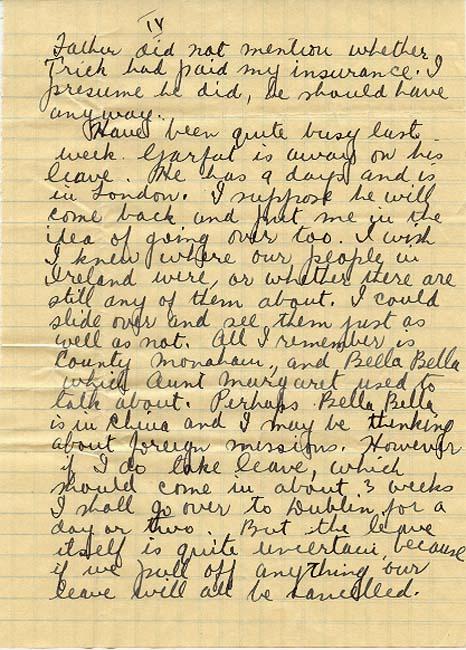 IV
Father did not mention whether
Trick had paid my insurance. I
presume he did, he should have
anyway.
Have been quite busy last
week. Garfat is away on his
leave. He has 9 days and is
in London. I suppose he will
come back and put me in the
idea of going over too. I wish
I knew where our people in
Ireland were, or whether there are
still any of them about. I could
slide over and see them just as
well as not. All I remember is
County Monahan, and Bella Bella
which Aunt Margaret used to
talk about. Perhaps Bella Bella
is in China and I may be thinking
about foreign missions. However
if I do take leave, which
should come in about 3 weeks
I shall go over to Dublin for a
day or two. But the leave
itself is quite uncertain, because
if we pull off anything our
leave will all be cancelled.